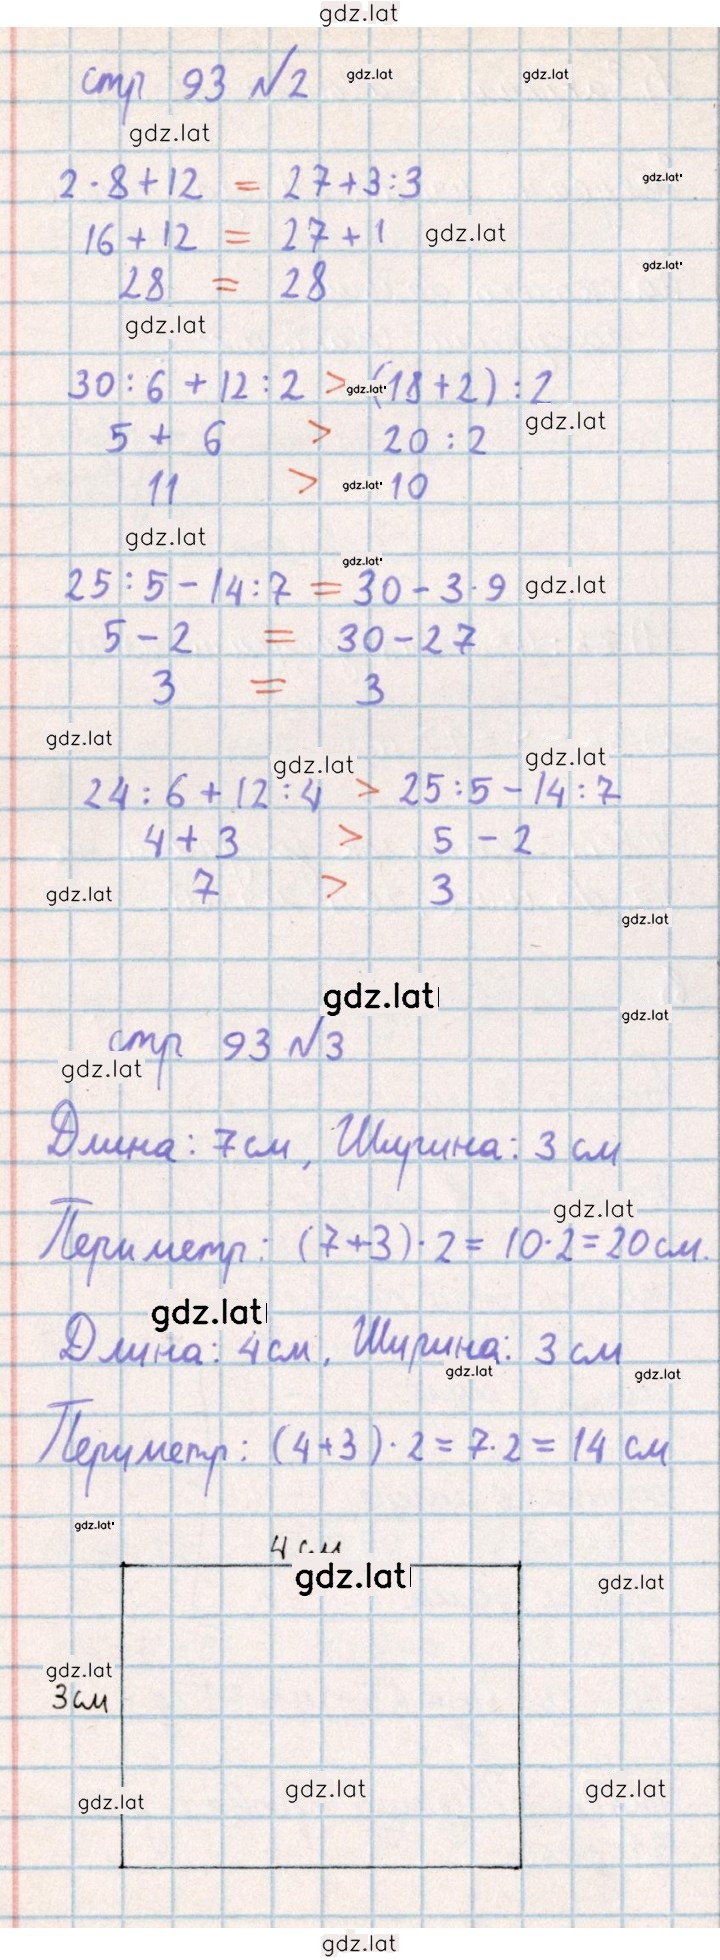 gdz.lat
стр 93 №2 gdz.lat gdz.lat
gdz.lat
2·8+12 = 27+3:3 gdz.lat
16+12 = 27+1 gdz.lat
28 = 28 gdz.lat
gdz.lat
30:6+12:2 > gdz.lat (18+2):2
gdz.lat
5+6 > 20:2
11 > gdz.lat 10
gdz.lat
gdz.lat
25:5-14:7 = 30-3·9 gdz.lat
5-2 = 30-27
3 = 3
gdz.lat
gdz.lat gdz.lat
24:6+12:4 > 25:5-14:7
4+3 > 5-2
gdz.lat 7 > 3
gdz.lat
gdz.lat gdz.lat
стр 93 №3
gdz.lat
Длина: 7см, Ширина: 3см
gdz.lat
Периметр: (7+3)·2=10·2=20см.
gdz.lat
Длина: 4см, Ширина: 3см
gdz.lat gdz.lat
Периметр: (4+3)·2=7·2=14 см
gdz.lat
4см
gdz.lat gdz.lat
gdz.lat
3см
gdz.lat gdz.lat gdz.lat
gdz.lat